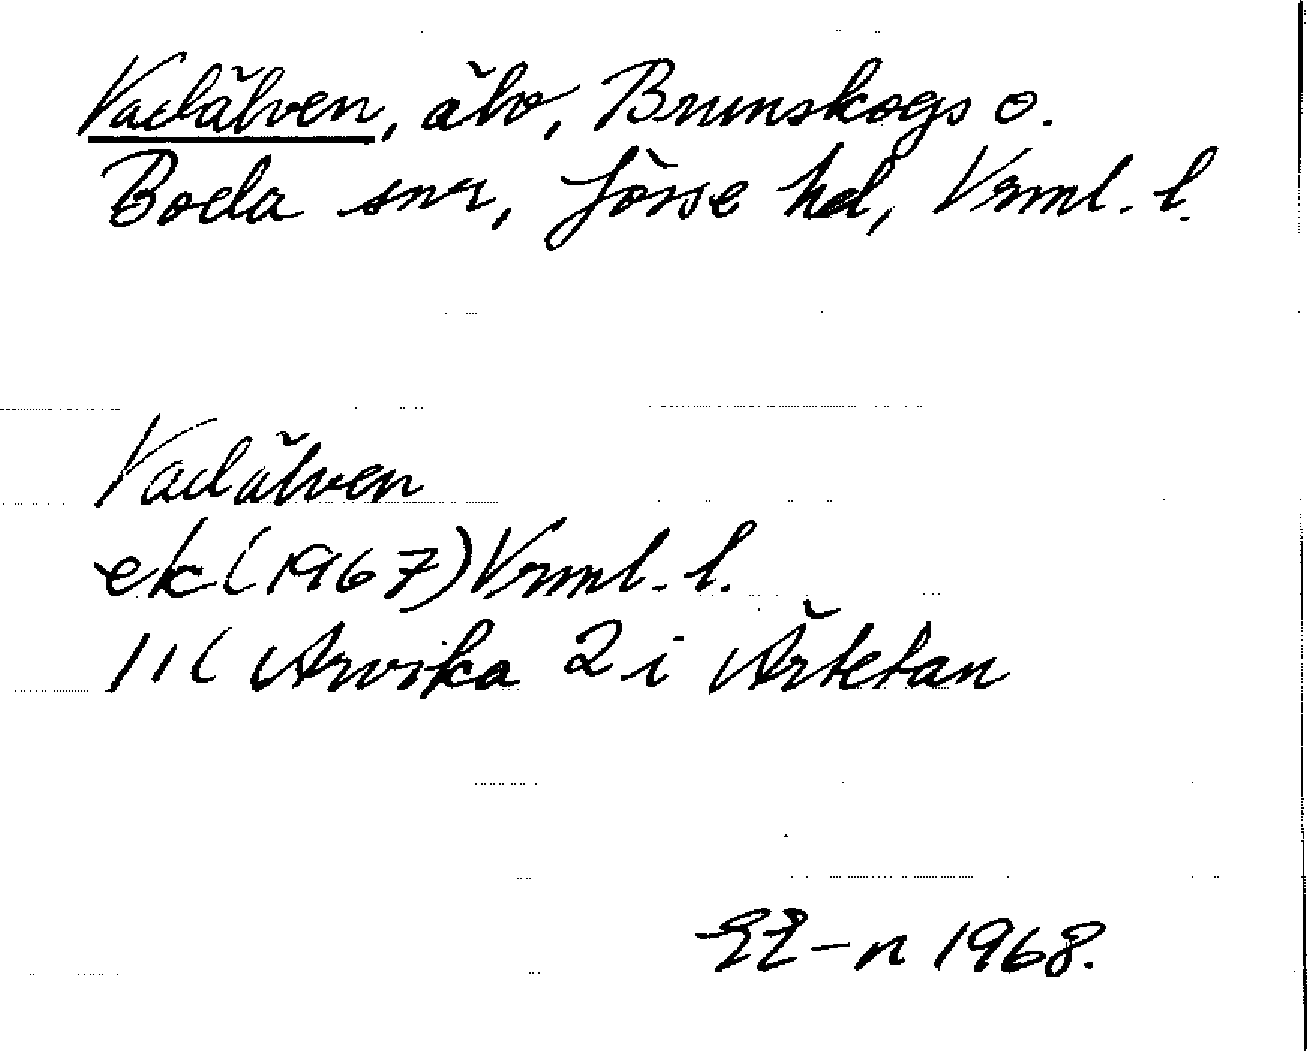 Vadälven, älv, Brunskogs o.
Boda snr, Jösse hd, Vrml. l.
Vadälven
ek (1967) Vrml. l.
11C Arvika 2 i Ärtetan
EL-n 1968.